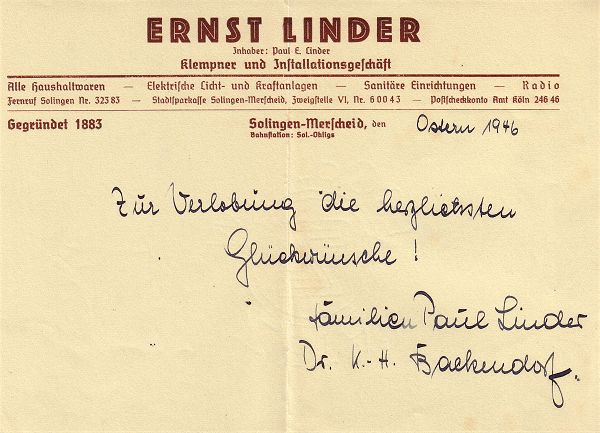 ERNST LINDER
Inhaber: Paul E. Linder
Klempner und Installationsgeschäft
Alle Haushaltwaren — Elektrische Licht- und Kraftanlagen — Sanitäre Einrichtungen — Radio
Fernruf Solingen Nr. 323 83 — Stadtsparkasse Solingen-Merscheid, Zweigstelle VI, Nr. 60043 — Postscheckkonto Amt Köln 246 46
Gegründet 1883 Solingen-Merscheid, den Ostern 1946
Bahnstation: Sol.-Ohligs
Zur Verlobung die herzlichsten
Glückwünsche!
Familien Paul Linder
Dr. K.-H. Backendorf.